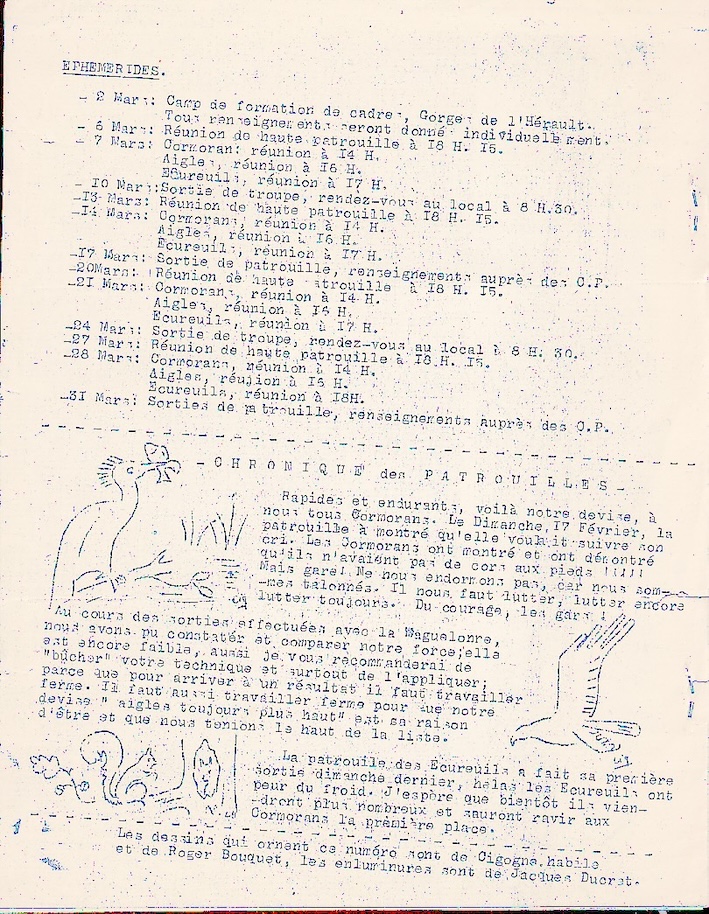 EPHEMERIDES.
- 2 Mars: Camp de formation de cadres, Gorges de l'Hérault.
Tous renseignements seront donnés individuellement.
- 6 Mars: Réunion de haute patrouille à I8 H. I5.
- 7 Mars: Cormorans réunion à I4 H.
Aigles, réunion à I6 H.
Ecureuils, réunion à I7 H.
- IO Mars: Sortie de troupe, rendez-vous au local à 8 H.30.
-I3 Mars: Réunion de haute patrouille à I8 H. I5.
-I4 Mars: Cormorans, réunion à I4 H.
Aigles, réunion à I6 H.
Ecureuils, réunion à I7 H.
-I7 Mars: Sortie de patrouille, renseignements auprès des C.P.
-20Mars: Réunion de haute patrouille à I8 H. I5.
-2I Mars: Cormorans, réunion à I4 H.
Aigles, réunion à I6 H.
Ecureuils, réunion à I7 H.
-24 Mars: Sortie de troupe, rendez-vous au local à 8 H. 30.
-27 Mars: Réunion de haute patrouille à I8 H. I5.
-28 Mars: Cormorans, réunion à I4 H.
Aigles, réujion à I6 H.
Ecureuils, réunion à I8H.
-3I Mars: Sorties de patrouille, renseignements auprès des C.P.
- C H R O N I Q U E des P A T R O U I L L E S -
Rapides et endurants, voilà notre devise, à
nous tous Cormorans. Le Dimanche I7 Février, la
patrouille à montré qu'elle voulait suivre son
cri. Les Cormorans ont montré et ont démontré
qu'ils n'avaient pas de cors aux pieds !!!!!
Mais gare! Ne nous endormons pas, car nous som-
-mes talonnés. Il nous faut lutter, lutter encore
lutter toujours. Du courage, les gars !
Au cours des sorties effectuées avec la Maguelonne,
nous avons pu constater et comparer notre force; elle
est encore faible, aussi je vous recommanderai de
"bûcher" votre technique et surtout de l'appliquer;
parce que pour arriver à un résultat il faut travailler
ferme. Il faut aussi travailler ferme pour que notre
devise " aigles toujours plus haut" est sa raison
d'être et que nous tenions le haut de la liste.
La patrouile des Ecureuils a fait sa première
sortie dimanche dernier, hélas les Ecureuils ont
peur du froid. J'espère que bientôt ils vien-
-dront plus nombreux et sauront ravir aux
Cormorans la première place.
Les dessins qui ornent ce numéro sont de Cigogne habile
et de Roger Bouquet, les enluminures sont de Jacques Ducret.